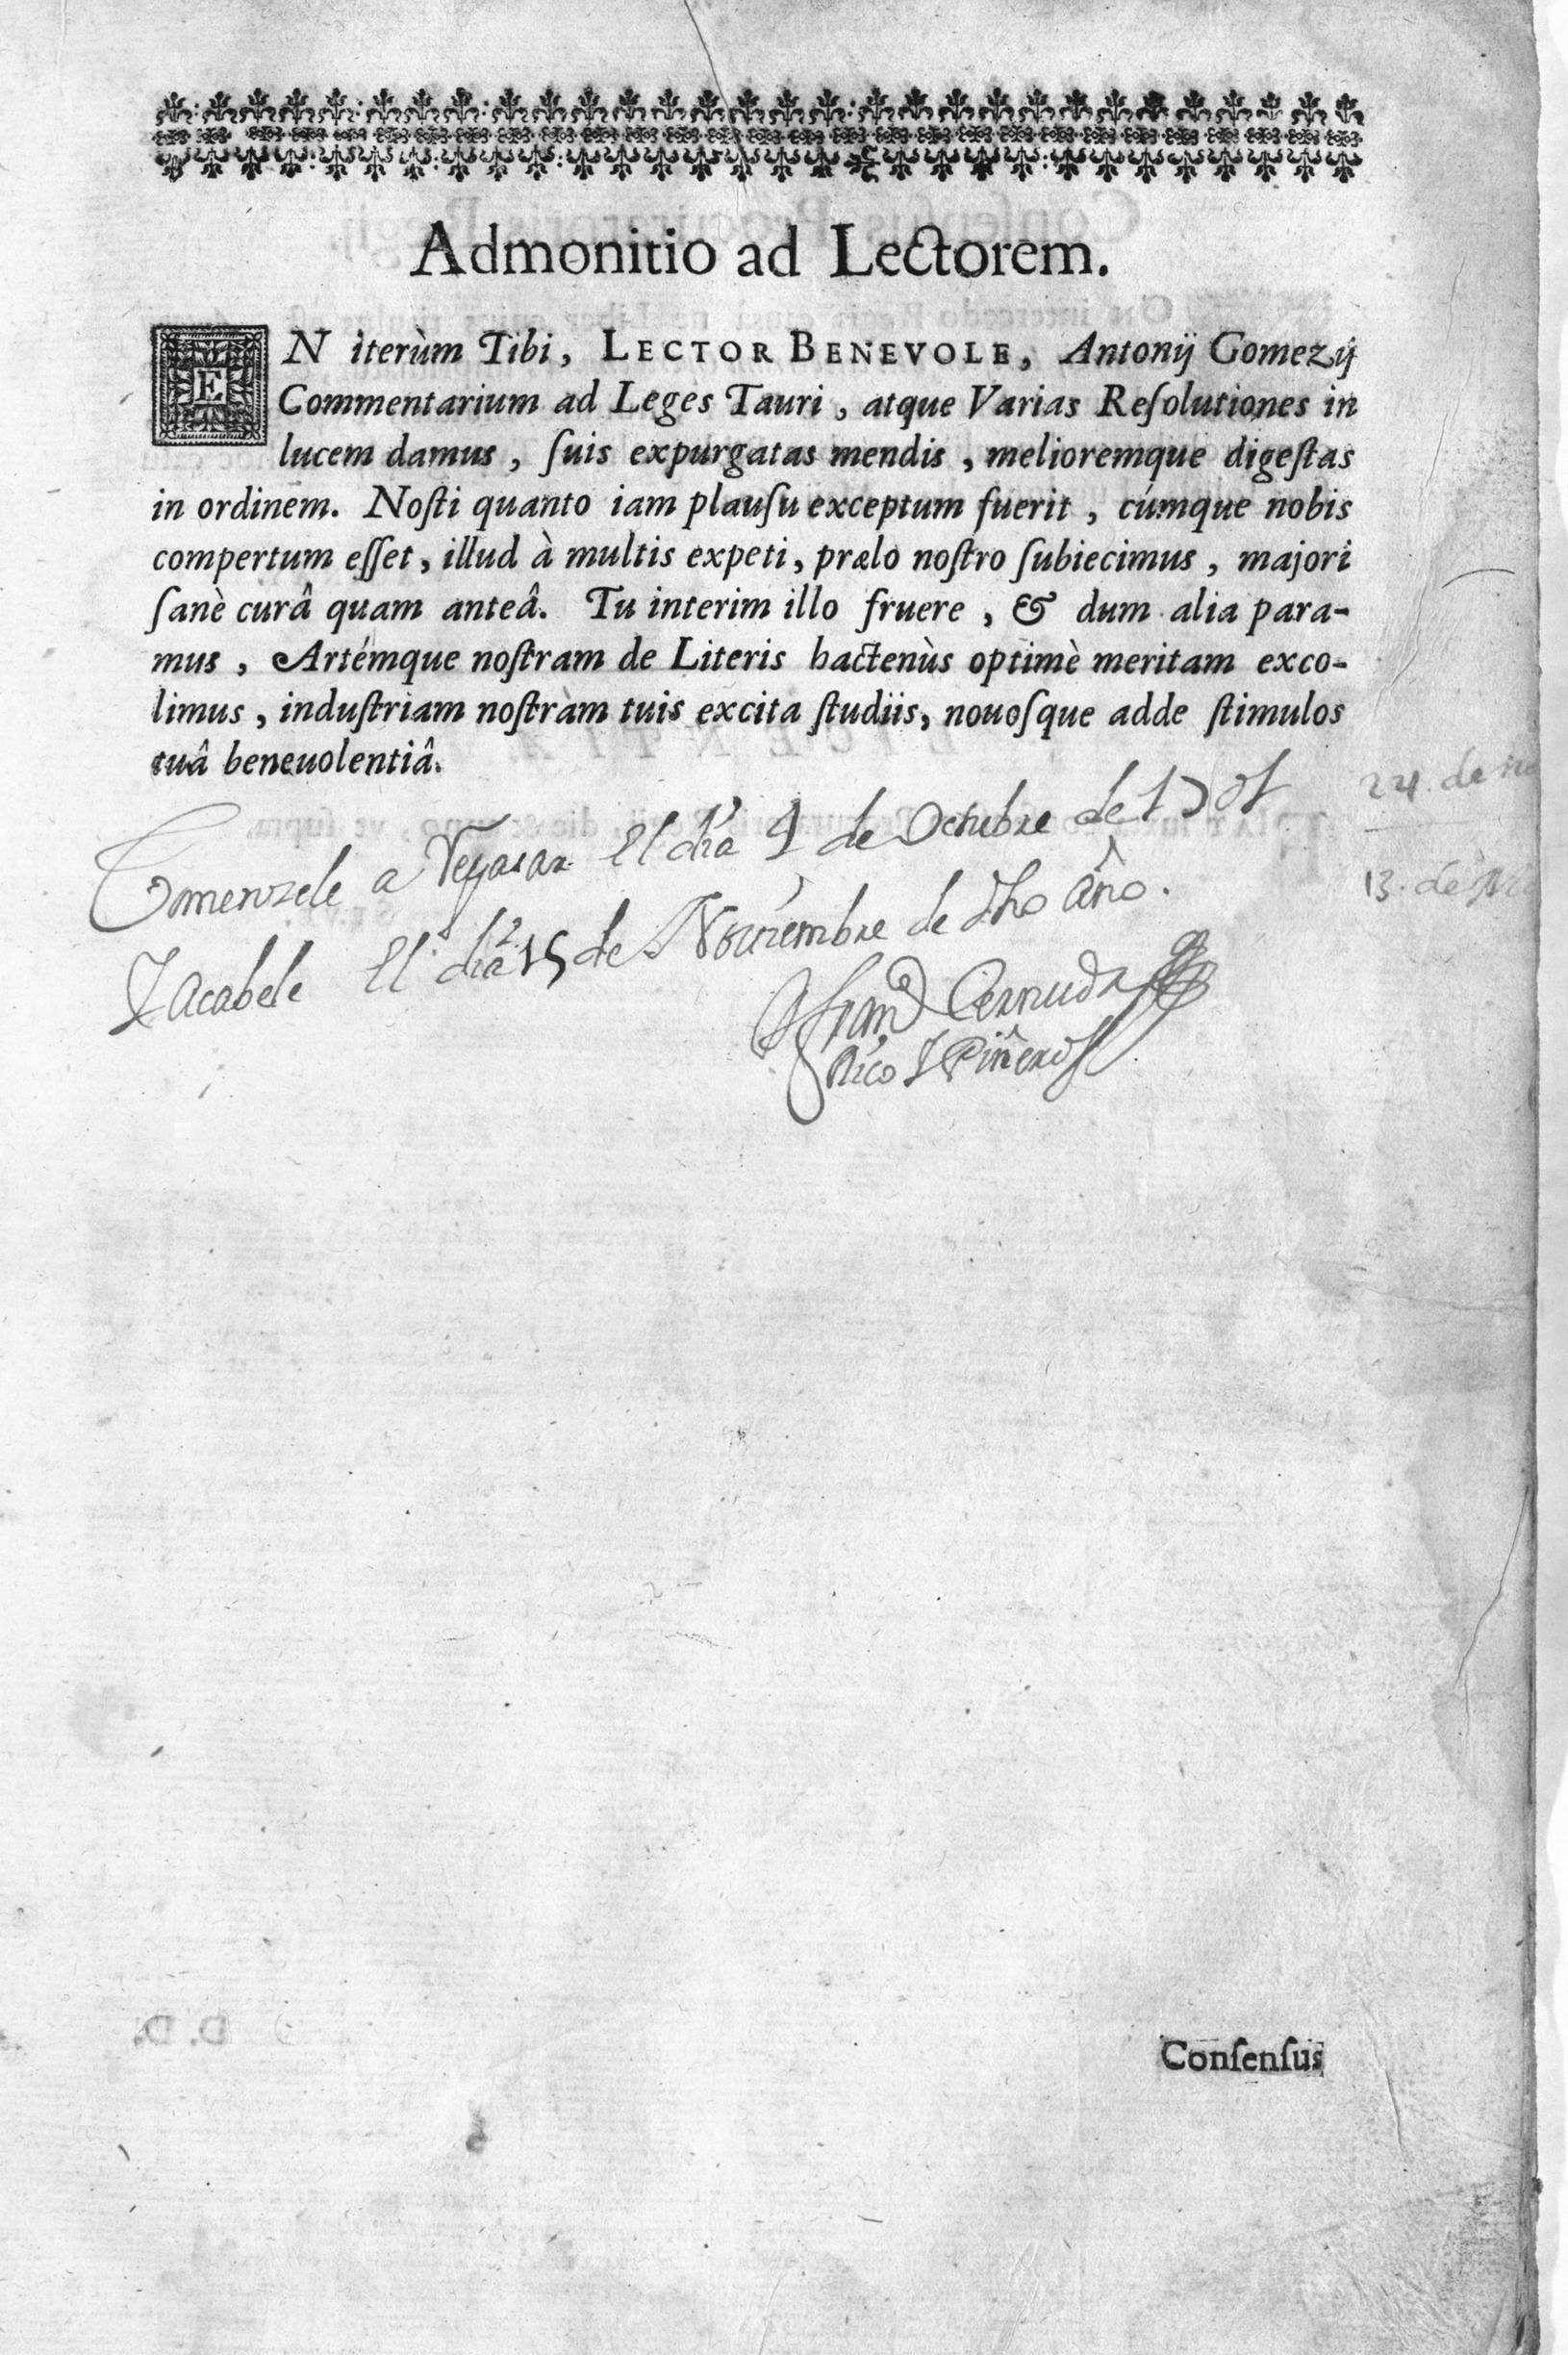 Admonitio ad Lectorem.
EN iterùm Tibi, LECTOR BENEVOLE, Antonij Gomezij
Commentarium ad Leges Tauri, atque Varias Reſolutiones in
lucem damus, ſuis expurgatas mendis, melioremque digeſtas
in ordinem. Noſti quanto iam plauſu exceptum fuerit, cúmque nobis
compertum eſſet, illud à multis expeti, prælo noſtro ſubiecimus, majori
ſanè curâ quam anteâ. Tu interim illo fruere, & dum alia para-
mus, Artémque noſtram de Literis hactenùs optimè meritam exco-
limus, induſtriam noſtram tuis excita ſtudiis, nouoſque adde ſtimulos
tuâ beneuolentiâ.
24. de
Comenzele a Repasar El dia 9 de Octubre de 1701
13. de
Y Acabele El dia 15 de Noviembre de dho Año.
Cernuda
Rico Y Piñero
Conſenſus